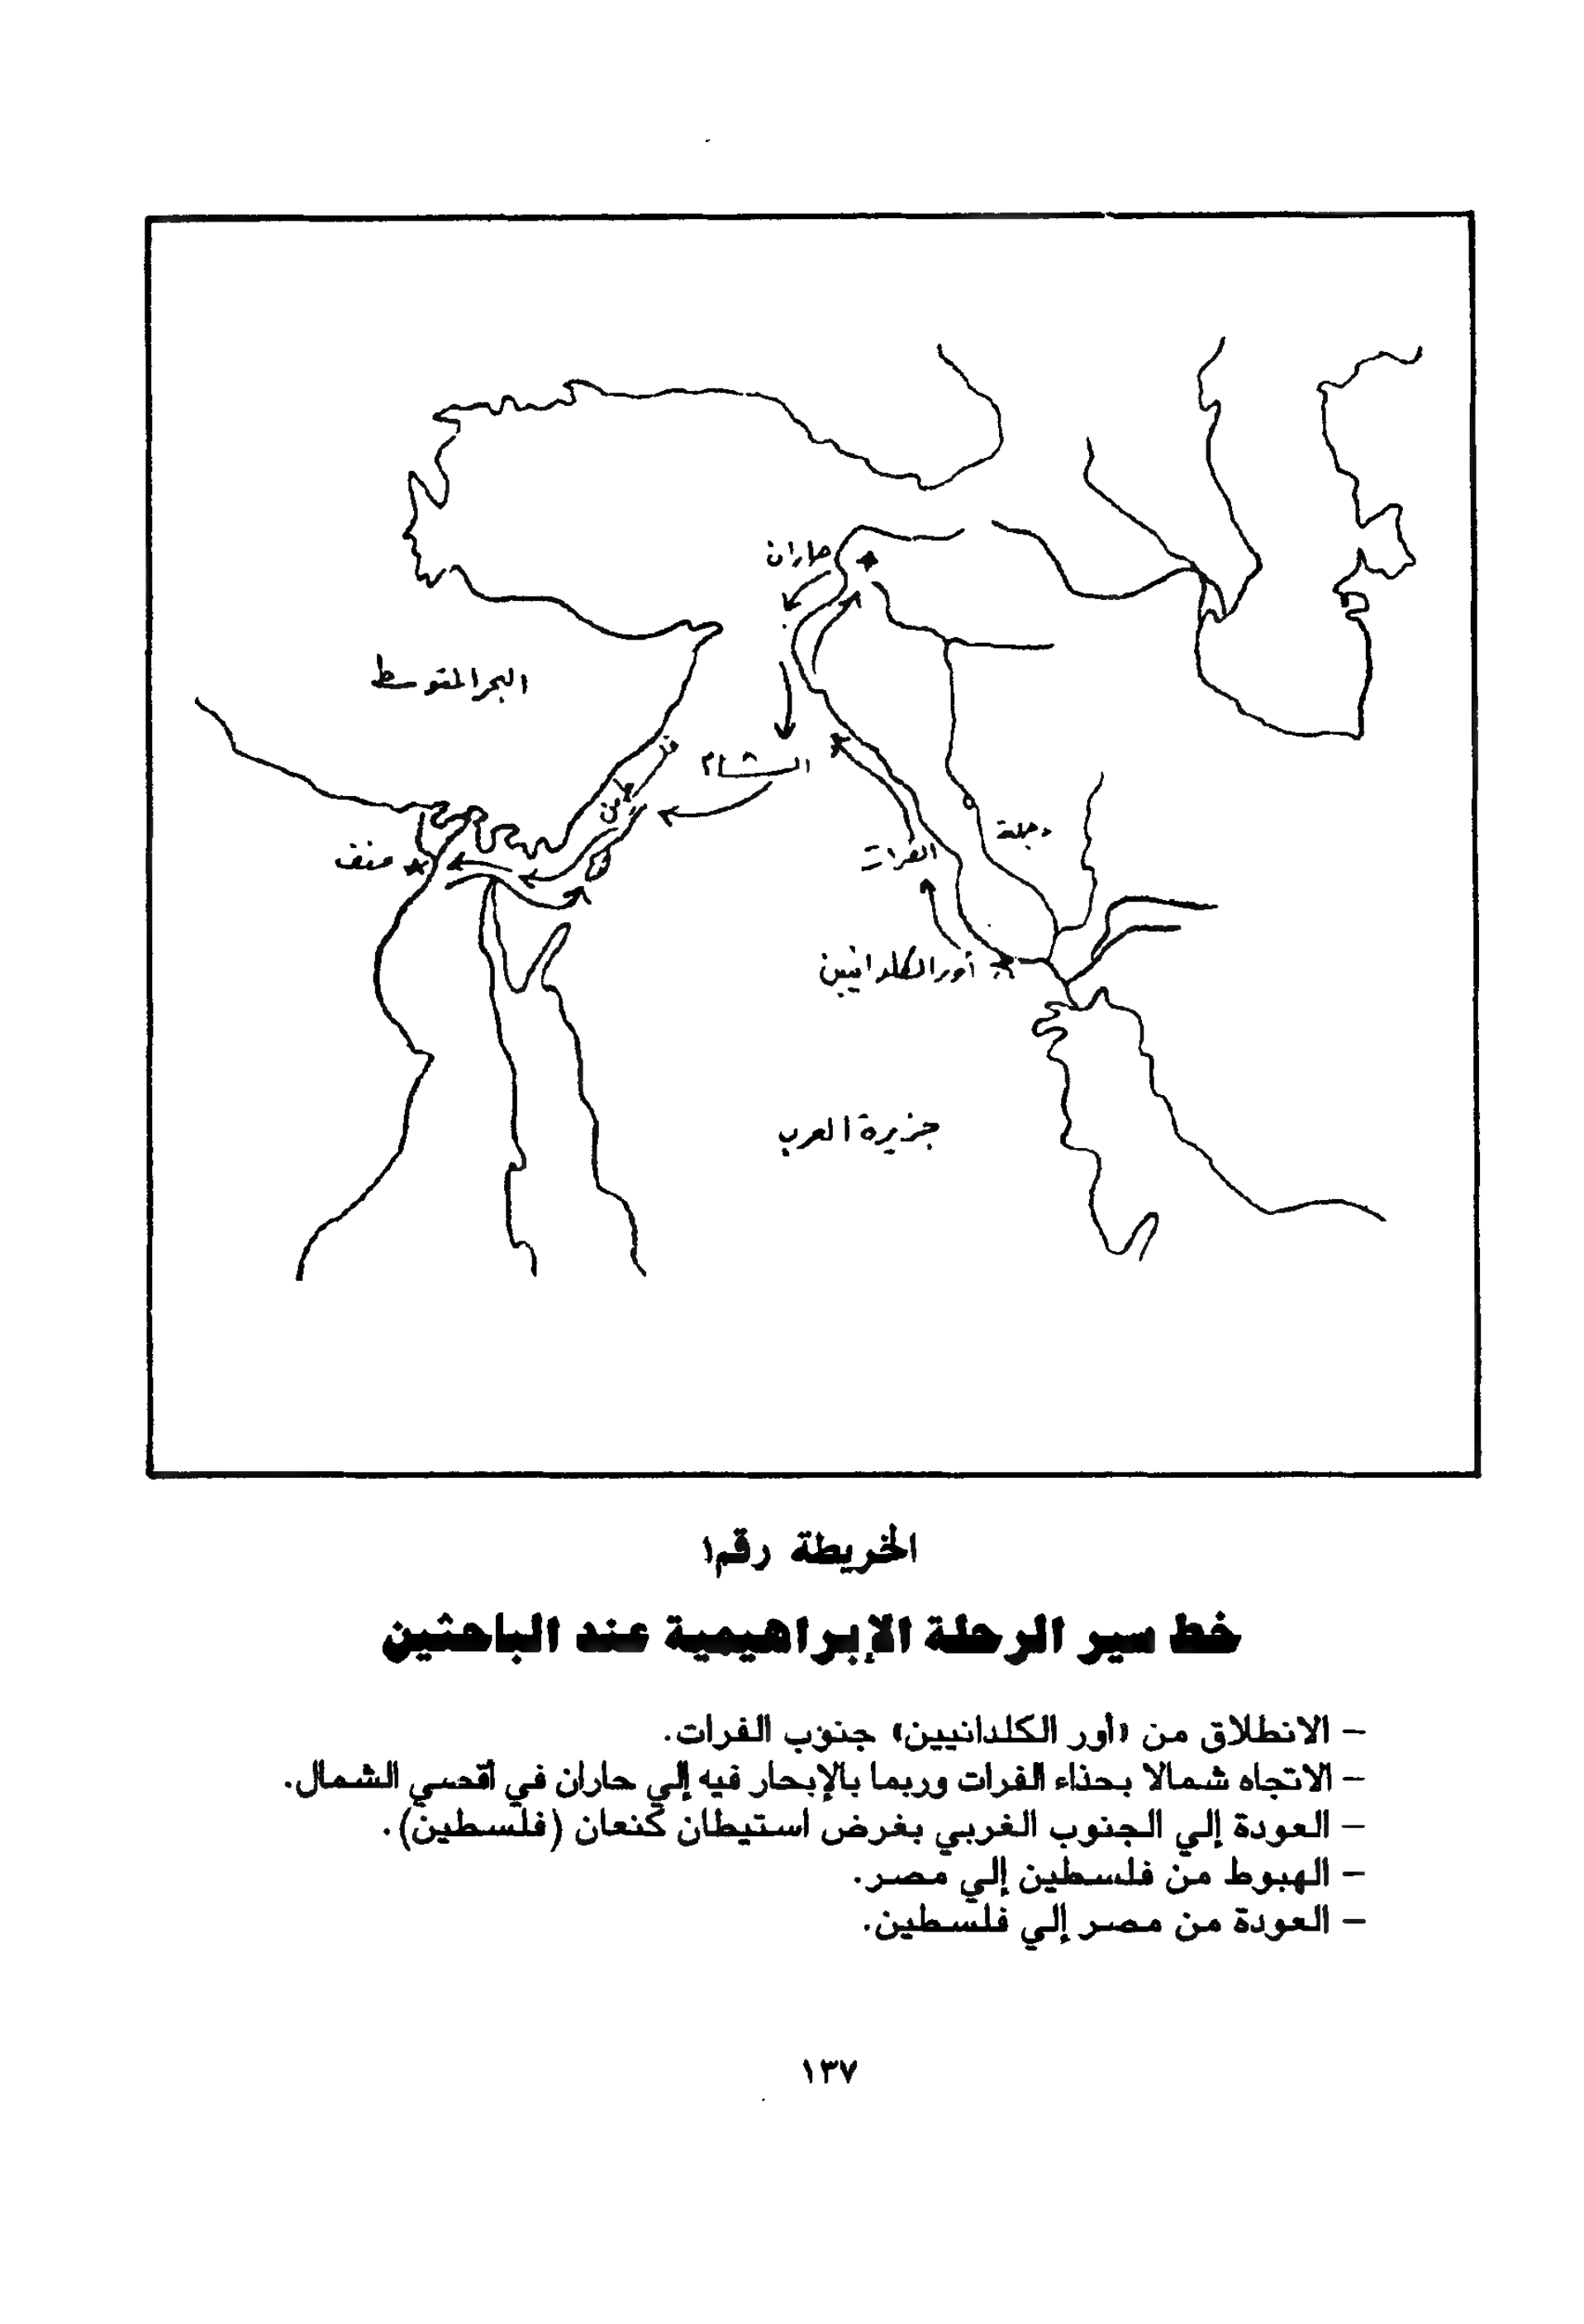 حاران
البحر المتوسط
الشام
دجلة
الفرات
منف
أور الكلدانيين
جزيرة العرب
الخريطة رقم ١
خط سير الرحلة الإبراهيمية عند الباحثين
– الانطلاق من «أور الكلدانيين» جنوب الفرات.
– الاتجاه شمالا بحذاء الفرات وربما بالإبحار فيه إلي حاران في أقصي الشمال.
– العودة إلي الجنوب الغربي بغرض استيطان كنعان (فلسطين).
– الهبوط من فلسطين إلي مصر.
– العودة من مصر إلي فلسطين.
١٣٧